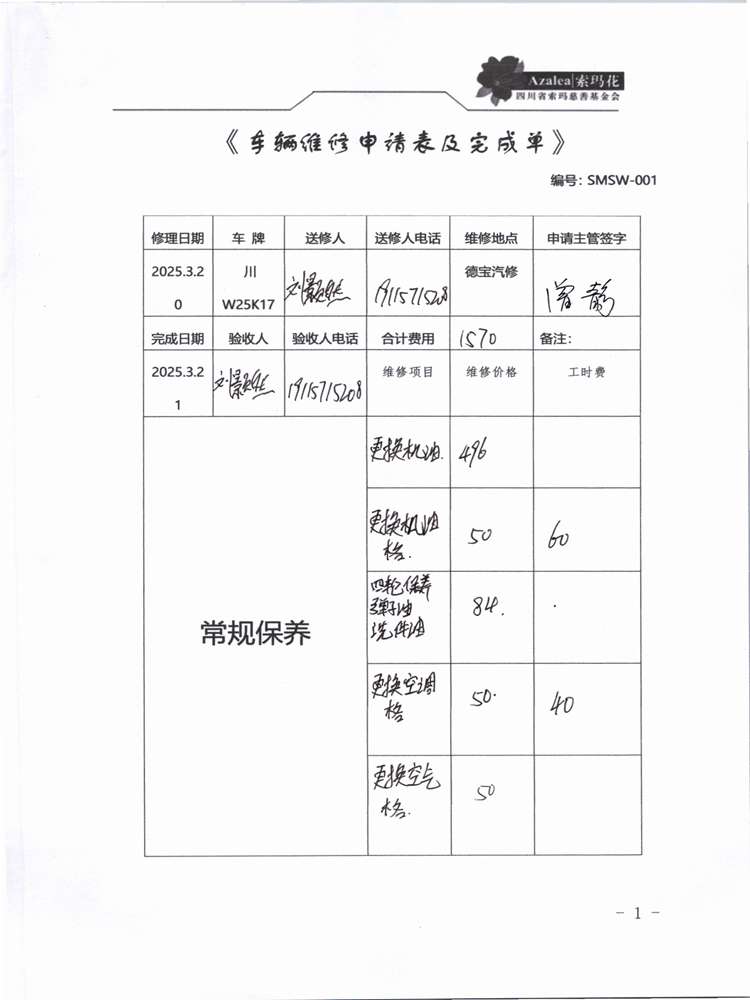 Azalea|索玛花
四川省索玛慈善基金会
《车辆维修申请表及完成单》
编号：SMSW-001
修理日期 车 牌 送修人 送修人电话 维修地点 申请主管签字
2025.3.2 川 德宝汽修
0 W25K17 刘 19115715208 曾静
完成日期 验收人 验收人电话 合计费用 1570 备注：
2025.3.2 维修项目 维修价格 工时费
1 刘 19115715208
更换机油. 496
更换机油 50 60
格.
常规保养
四轮保养 84.
油
洗件油
更换空调 50. 40
格
更换空气 50
格.
- 1 -